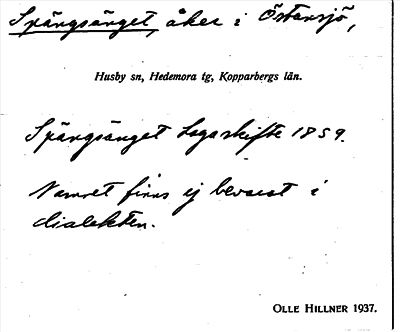 Spångsänget, åker i Östansjö,
Husby sn, Hedemora tg, Kopparbergs län.
Spångsänget Lagaskifte 1859.
Namnet finns ej bevarat i
dialekten.
OLLE HILLNER 1937.